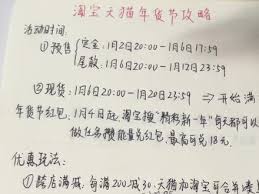 淘宝天猫年货节攻略
活动时间:
①预售 定金:1月2日20:00-1月6日17:59
尾款:1月6日20:00-1月12日23:59
②现货:1月6日20:00-1月20日23:59 → 开始满
年货节红包,1月4日起淘宝搜"精彩新一年"每天都可以
做任务攒能量兑红包,最高可兑18元。
优惠玩法:
①跨店满减,每满200减30,天猫加淘宝可合并凑